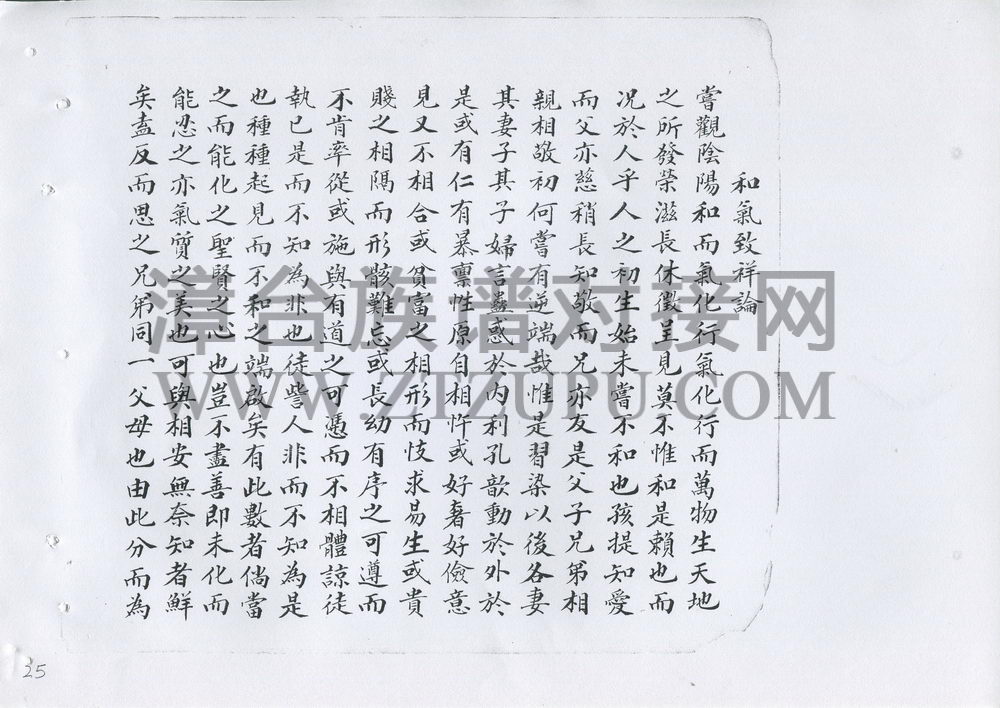 和氣致祥論
嘗觀陰陽和而氣化行氣化行而萬物生天地
之所發榮滋長休徵呈見莫不惟和是賴也而
況於人乎人之初生始未嘗不和也孩提知愛
而父亦慈稍長知敬而兄亦友是父子兄弟相
親相敬初何嘗有逆端哉惟是習染以後各妻
其妻子其子婦言蠱惑於內利孔歆動於外於
是或有仁有暴禀性原自相忤或好奢好儉意
見又不相合或貧富之相形而忮求易生或貴
賤之相隔而形骸難忘或長幼有序之可遵而
不肯率從或施與有道之可憑而不相體諒徒
執已是而不知為非也徒訾人非而不知為是
也種種起見而不和之端啟矣有此數者倘當
之而能化之聖賢之心也豈不盡善即未化而
能忍之亦氣質之美也可與相安無奈知者鮮
矣盍反而思之兄弟同一父母也由此分而為
漳台族谱对接网
WWW.ZTZUPU.COM
25